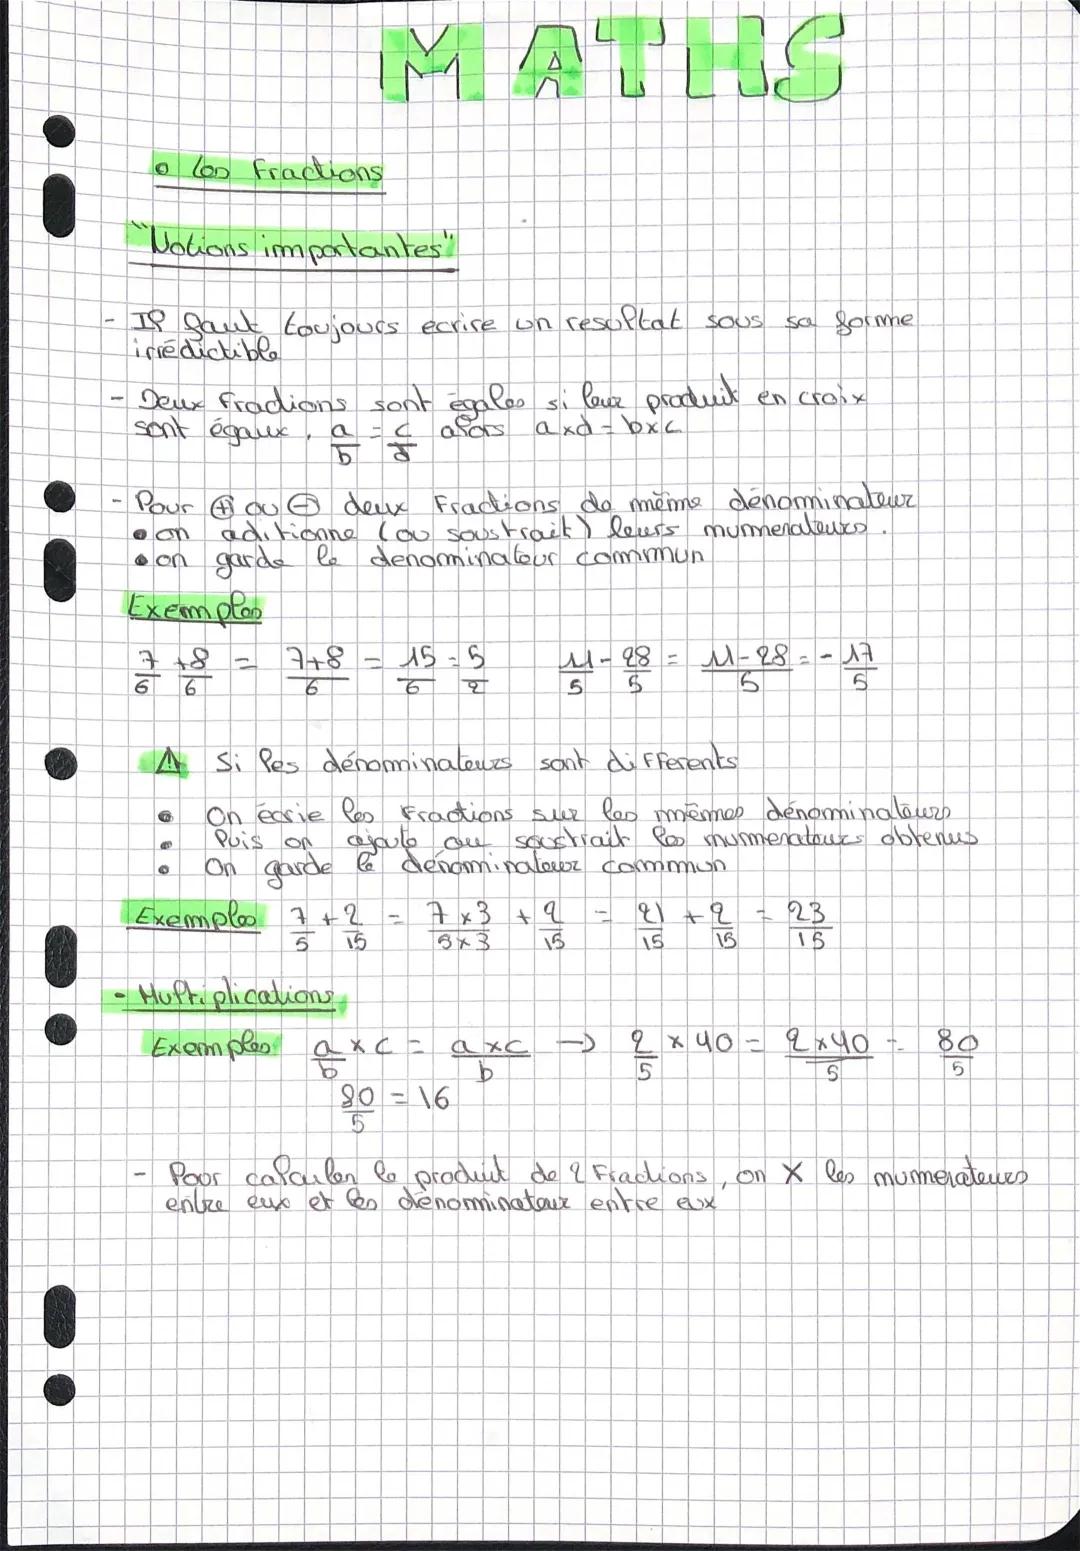 MATHS
o les Fractions
"Notions importantes"
- Il faut toujours ecrire un resultat sous sa forme
irrédictible
- Deux fractions sont égales si leur produit en croix
sont égaux, a/b = c/d alors axd = bxc
- Pour ⊕ ou ⊖ deux Fractions de même dénominateur
• on aditionne (ou soustrait) leurs numerateurs.
• on garde le denominateur commun
Exemples
7/6 + 8/6 = 7+8/6 = 15/6 = 5/2 11/5 - 28/5 = 11-28/5 = - 17/5
⚠ Si les dénominateurs sont differents
• On écrie les Fractions sur les mêmes dénominateurs
• Puis on ajoute ou soustrait les numerateurs obtenus
• On garde le dénominateur commun
Exemples 7/5 + 2/15 = 7x3/5x3 + 2/15 = 21/15 + 2/15 = 23/15
- Multiplications
Exemples a/b x c = axc/b → 2/5 x 40 = 2x40/5 = 80/5
80/5 = 16
- Pour calculer le produit de 2 Fractions, on X les numerateurs
entre eux et les dénominateur entre eux